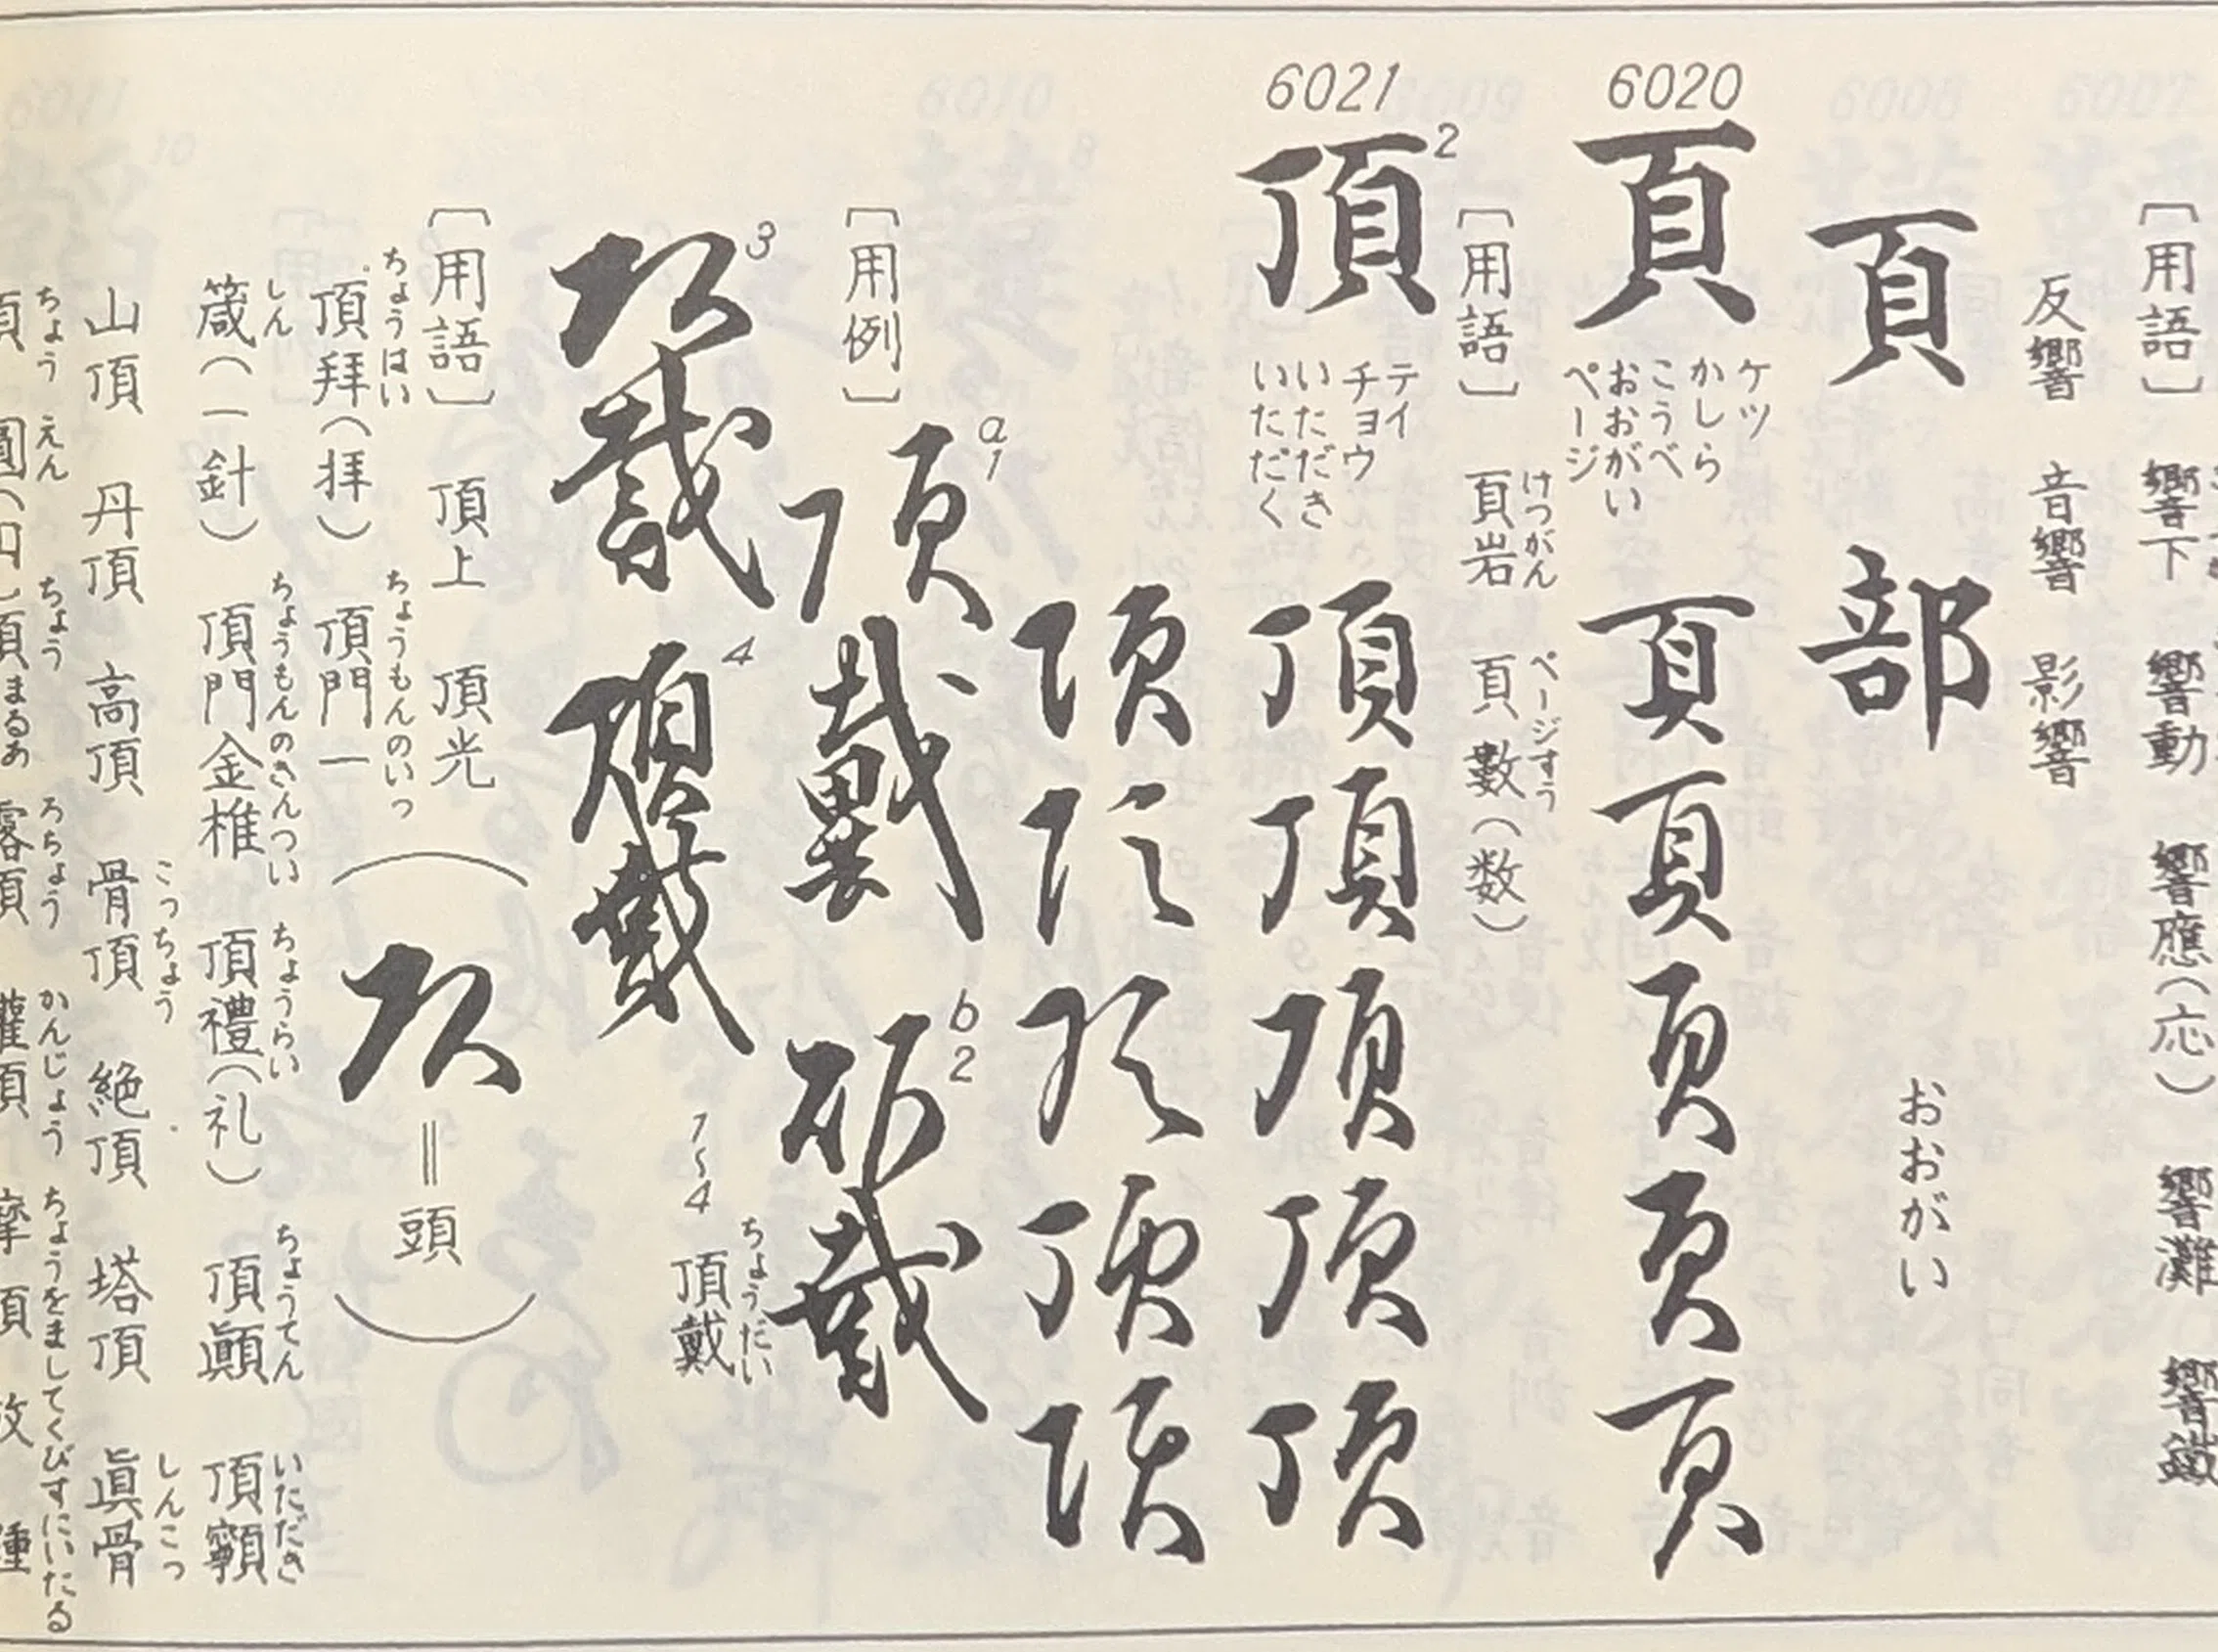 〔用語〕 響下 響動 響應(応) 響灘 響鐵
反響 音響 影響
頁部 おおがい
6020
頁 ケツ かしら こうべ おおがい ページ
頁 頁 頁 頁 頁
〔用語〕 頁岩 頁數(数)
けつがん ページすう
6021
頂2 テイ チョウ いただき いただく
頂 頂 頂 頂 頂
頂 頂 頂 頂 頂
〔用例〕 a1 頂戴 b2 頂戴
3 頂戴 4 頂戴 1〜4 頂戴
ちょうだい
〔用語〕 頂上 頂光 (頂=頭)
ちょうはい ちょうもんのいっ
頂拜(拝) 頂門一
しん ちょうもんのきんつい ちょうらい ちょうてん いただき
箴(一針) 頂門金椎 頂禮(礼) 頂顚 頂顡
こっちょう しんこつ
山頂 丹頂 高頂 骨頂 絶頂 塔頂 眞骨
ちょう えん ちょう まるあ ろちょう かんじょう ちょうをましてくびすにいたる
頂 圓(円) 頂 露頂 灌頂 摩頂放踵